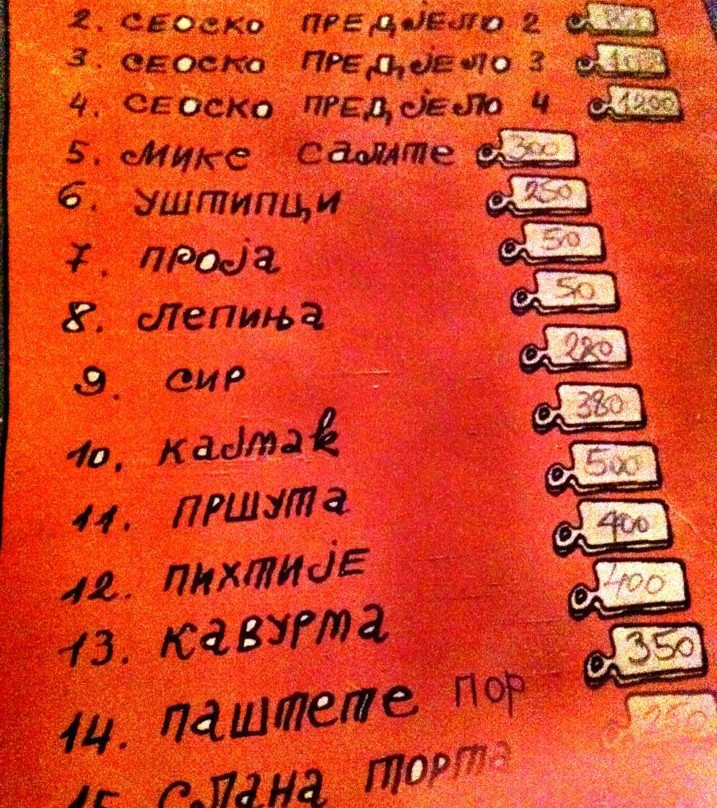 2. СЕОСКО ПРЕДЈЕЛО 2
3. СЕОСКО ПРЕДЈЕЛО 3
4. СЕОСКО ПРЕДЈЕЛО 4 1200
5. МИКЕ САЛАТЕ 300
6. УШТИПЦИ 250
7. ПРОЈА 50
8. ЛЕПИЊА 50
9. СИР 220
10. КАЈМАК 380
11. ПРШУТА 500
12. ПИХТИЈЕ 400
13. КАВУРМА 400
14. ПАШТЕТЕ ПОР 350
15. СЛАНА ТОРТА